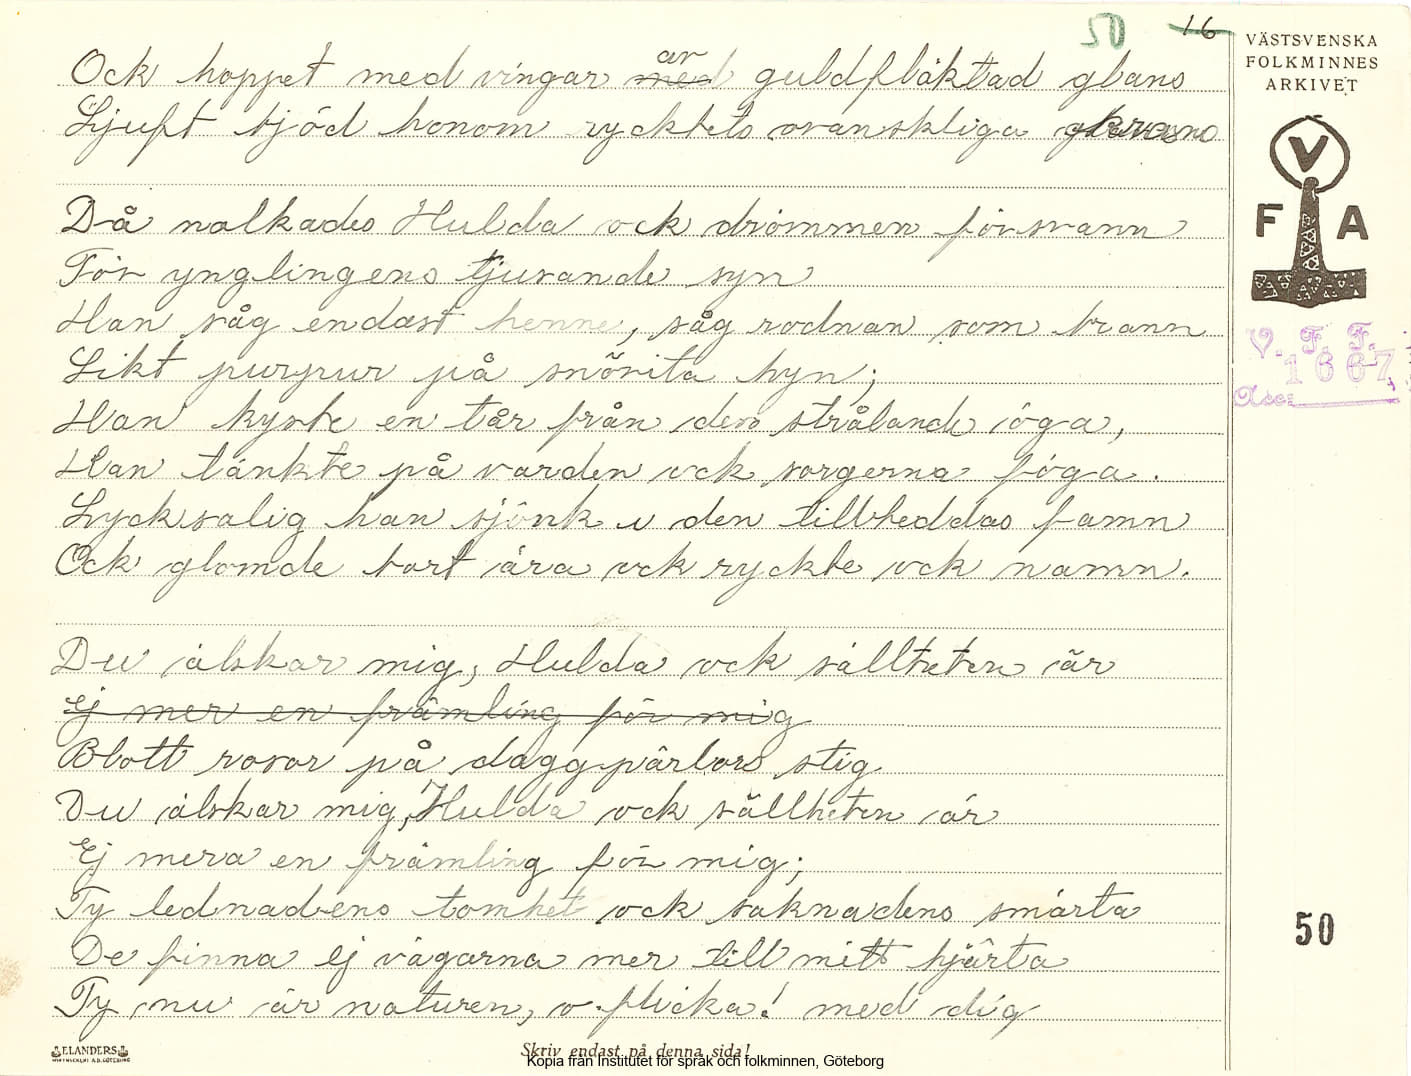 50 16
VÄSTSVENSKA
FOLKMINNES
ARKIVET
V
F A
V. F. F.
1667
Acc:
Ock hoppet med vingar med av guldfläktad glans
Ljuft bjöd honom rycktets ovanskliga krans
Då nalkades Hulda ock drömmen försvann
För ynglingens tjusande syn
Han såg endast henne, såg rodnan som brann
Likt purpur på snövita hyn;
Han kyste en tår från dess strålande öga,
Han tänkte på varden ock sorgerna föga.
Lycksalig han sjönk i den tillbeddas famn
Ock glömde bort ära ock ryckte ock namn.
Du älskar mig, Hulda ock sällheten är
Ej mer en främling för mig
Blott rosor på daggpärlors stig
Du älskar mig, Hulda ock sällheten är
Ej mera en främling för mig;
Ty lednadens tomhet ock saknadens smärta
De finna ej vägarna mer till mitt hjärta
Ty nu är naturen, o flicka! med dig
50
ELANDERS
Skriv endast på denna sida!
Kopia från Institutet för språk och folkminnen, Göteborg